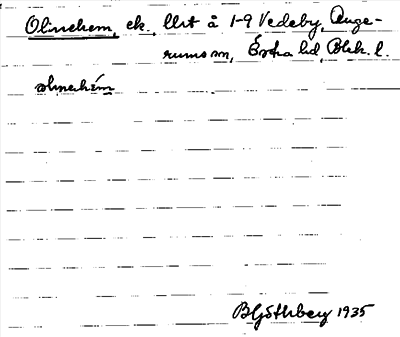 Olinehem, ek., llrt å 1-9 Vedeby, Auge-
rums sn, Östra hd, Blek. l.
olinehém
BGöthberg 1935